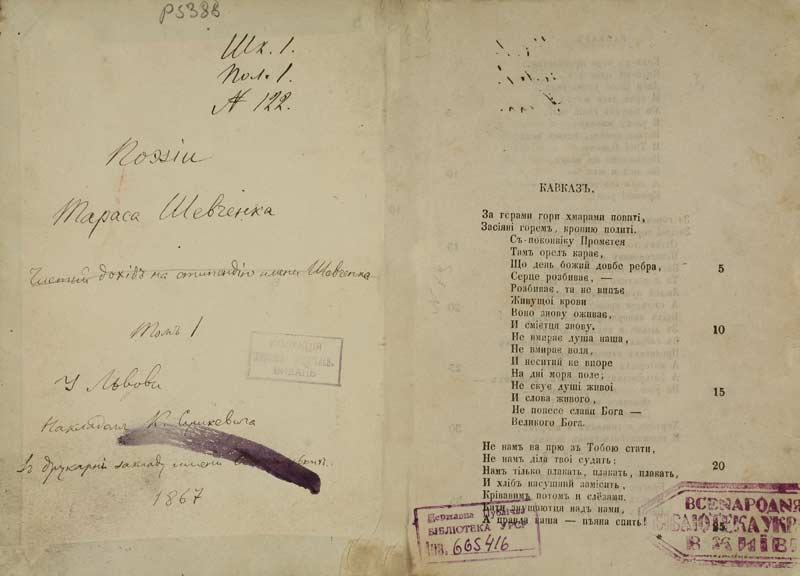 P5388
Шк. 1.
Пол. 1.
№ 122.
Поэзіи
Тараса Шевченка
Чистый дохідъ на стипендію имени Шевченка
Томъ 1
У Львови
Накладомъ К. Сушкевича
Зъ друкарнѣ закладу имени
1867
КАВКАЗЪ.
За горами гори хмарами повиті,
Засіяні горемъ, кровию политі.
Съ-поконвіку Прометея
Тамъ орелъ карає,
Що день божий довбе ребра,
5
Серце розбиває, —
Розбиває, та не випъє
Живущої крови
Воно знову оживає,
И смієтця знову.
10
Не вмирає душа наша,
Не вмирає воля,
И неситий не виоре
На дні моря поле;
Не скує душі живої
15
И слова живого,
Не понесе слави Бога —
Великого Бога.
Не намъ на прю зъ Тобою стати,
Не намъ діла твої судить:
20
Намъ тілько плакать, плакать, плакать,
И хлібъ насущний замісить,
Крівавимъ потомъ и слёзами.
Кати знущаютця надъ нами,
А правда наша — пъяна спить!
Державна Публічна
БІБЛІОТЕКА УРСР
Інв. 665416
ВСЕНАРОДНЯ
БІБЛІОТЕКА УКР
В КИЇВІ